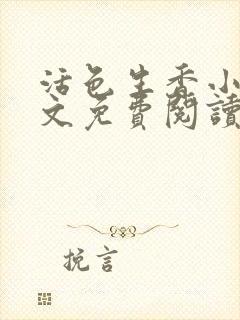 活色生香小
文免費閱讀
挽言